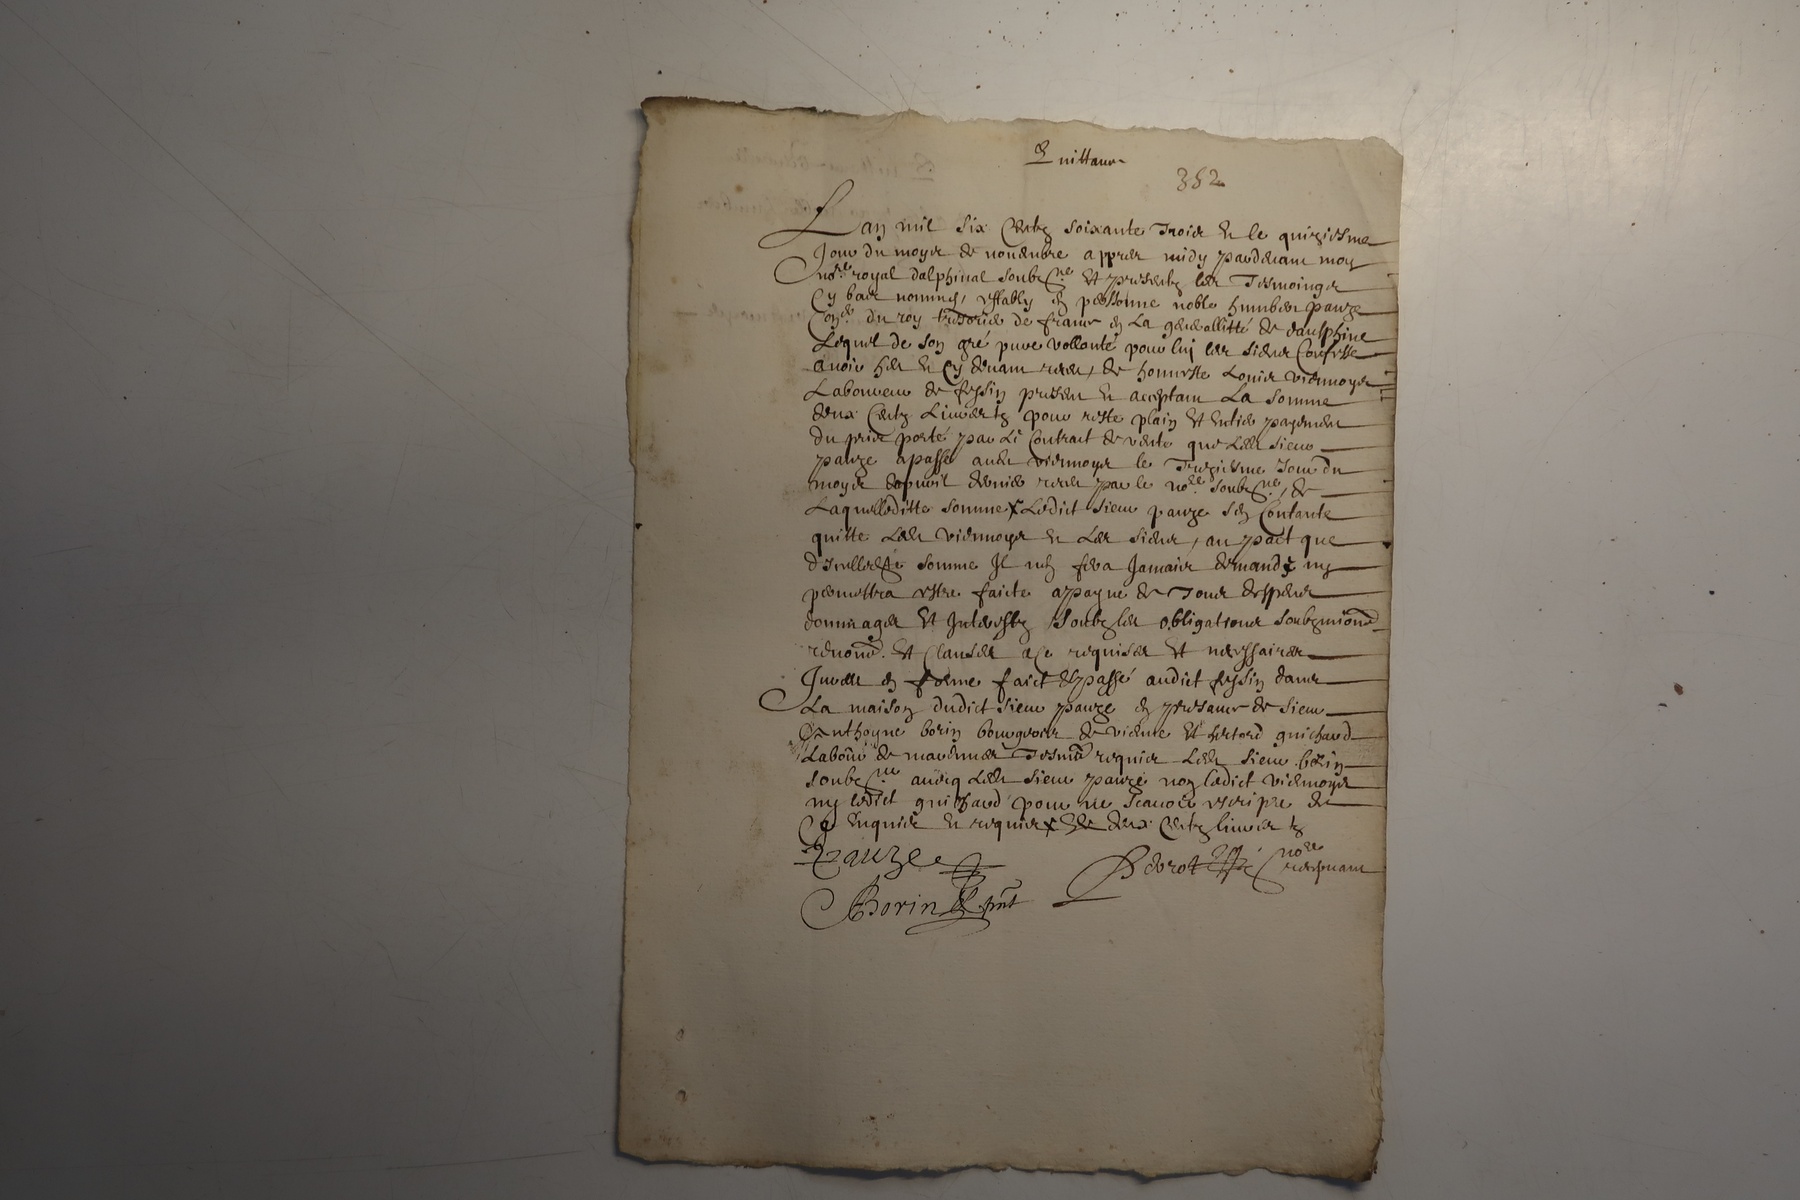 Quittance
352
Lan mil six centz soixante trois et le quinziesme
Jour du moys de novembre appres midy pardevant moy
no.re royal dalphinal soubz.ne et presentz les Tesmoingz
Cy bas nommés, estably en personne noble humber pauze
Con.er du roy tresorier de france en La generallitté de dauphine
Lequel de son gré pure vollonté pour luy les siens Confesse
avoir heu et Cy devant receu, de honneste Louis viennoys
Laboureur de feysin present et acceptant La somme
deux Centz Livres tz pour reste plain et entier payement
du prix porté par Le Contrait de vente que Led. sieur
pauze a passé aud. viennoys le Treziesme Jour du
moys dapvril dernier receu par le no.re soubz.ne, de
Laquelleditte somme Ledict sieur pauze sen Contante
quitte Led. viennoys et Les siens, au pact que
dIcelleditte somme Il nen fera Jamais demande ny
permettra estre faicte a payne de Tous despens
dommages et Interestz soubz les obligations soubzmions
renons. et Clauses a ce requises et necessaires
Jurées en forme faict et passé audict feysin dans
La maison dudict sieur pauze en presance de sieur
Anthoyne borin bourgeois de vienne et guichard
Labour de Tesmoins requis Led. sieur borin
soubz.ne avecq Led. sieur pauze non ledict viennoys
ny ledict guichard pour ne scavoir escripre de
Ce enquis et requis deux Centz livres tz
Pauze
no.re
recepvant
Borin pnt